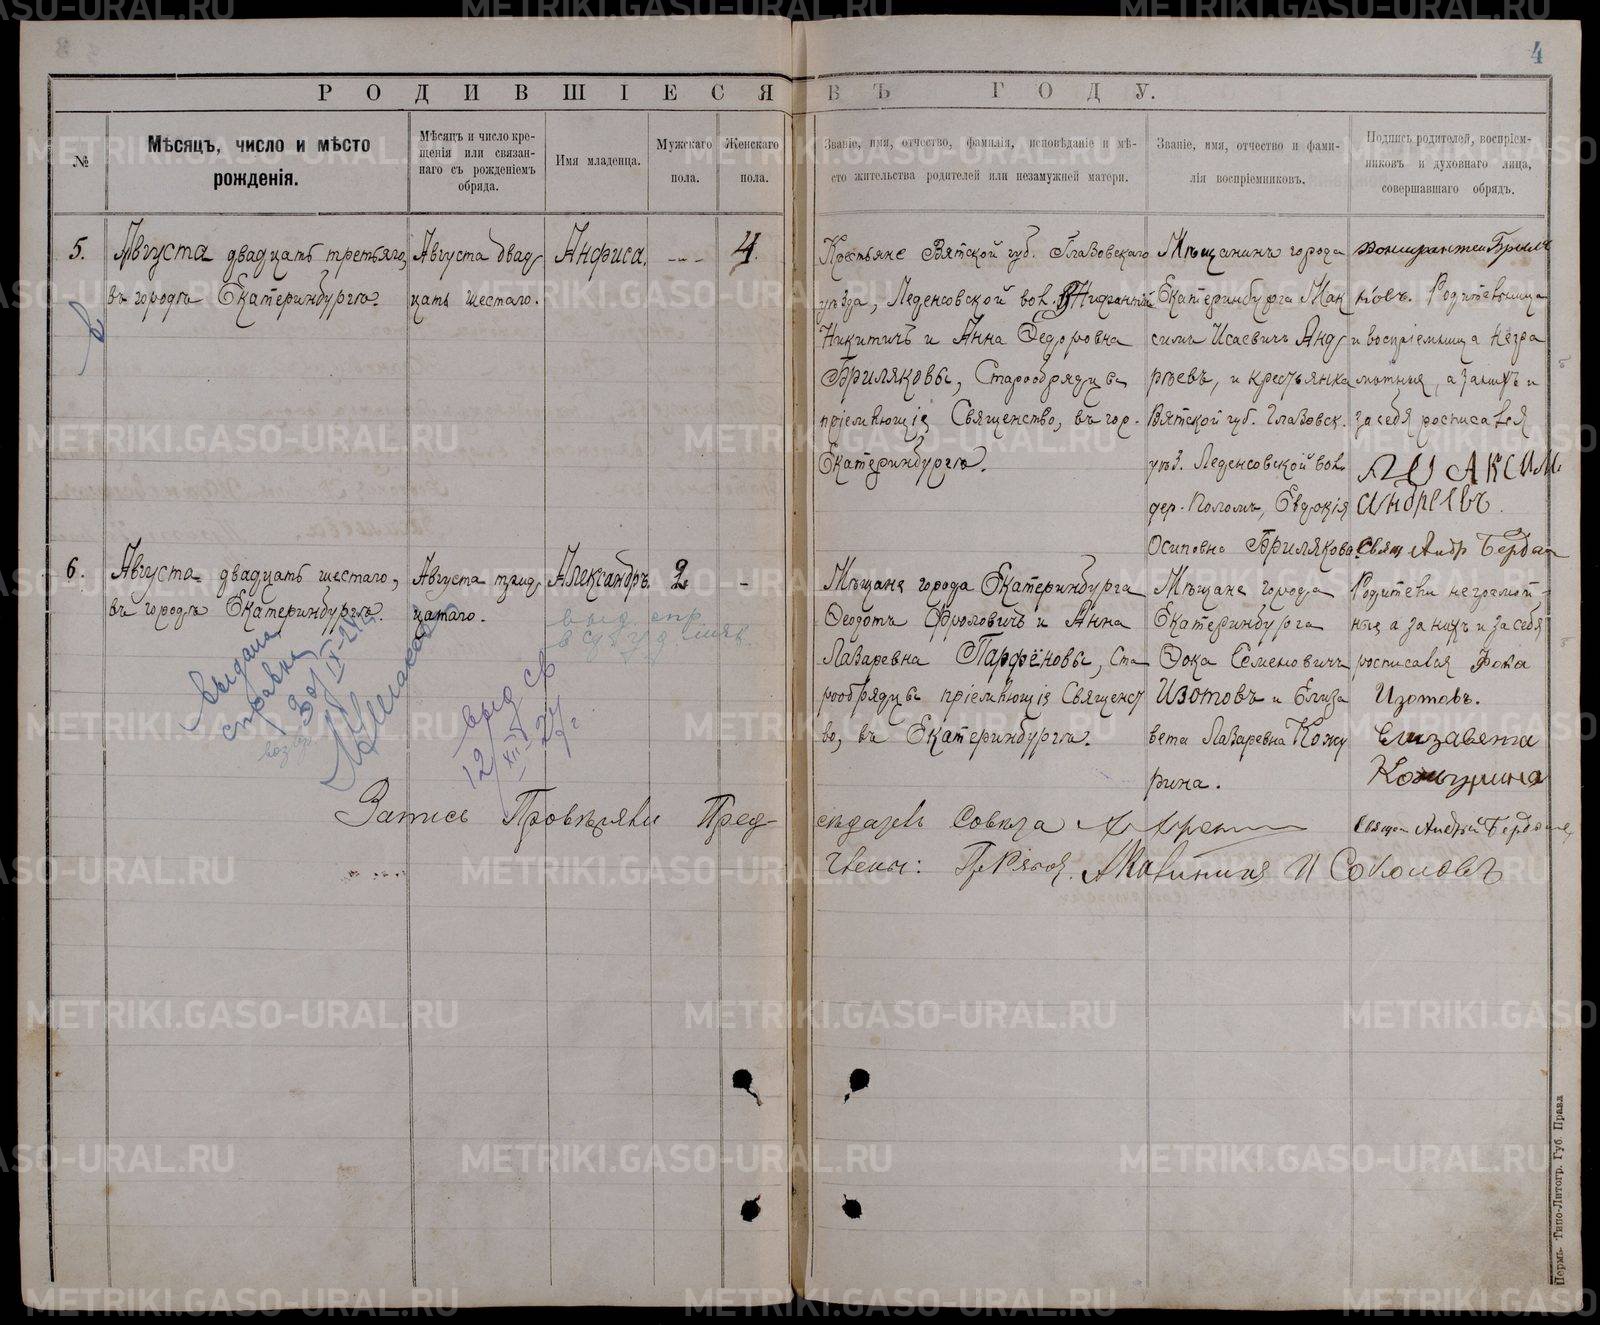 4
РОДИВШІЕСЯ ВЪ ГОДУ.
№
Мѣсяцъ, число и мѣсто
рожденія.
Мѣсяцъ и число кре-
щенія или связан-
наго съ рожденіемъ
обряда.
Имя младенца.
Мужскаго
пола.
Женскаго
пола.
Званіе, имя, отчество, фамилія, исповѣданіе и мѣ-
сто жительства родителей или незамужней матери.
Званіе, имя, отчество и фами-
лія воспріемниковъ.
Подпись родителей, воспріем-
никовъ и духовнаго лица,
совершавшаго обрядъ.
5.
Августа двадцать третьяго,
въ городѣ Екатеринбургѣ.
Августа двад
цать шестаго.
Анфиса.
4.
Крестьяне Вятской губ. Глазовскаго
уѣзда, Леденсовской вол.
Никитичъ и Анна Ѳедоровна
Бриляковы, Старообрядцы
пріемлющіе Священство, въ гор.
Екатеринбургѣ.
Мѣщанинъ города
Екатеринбурга Мак
симъ Исаевичъ Анд
реевъ, и крестьянка
Вятской губ. Глазовск.
уѣз. Леденсовской вол.
дер. Поломъ, Евдокія
Осиповна Брилякова.
Брил
ковъ. Родительница
и воспріемница негра
мотныя, а за нихъ и
за себя росписался
Максим
Андреевъ.
Свящ Андр Бердо
6.
Августа двадцать шестаго,
въ городѣ Екатеринбургѣ.
Августа трид
цатаго.
Александръ.
2
-
Мѣщане города Екатеринбурга
Ѳеодотъ Фроловичъ и Анна
Лазаревна Парфёновы, Ста
рообрядцы пріемлющіе Священст
во, въ Екатеринбургѣ.
Мѣщане города
Екатеринбурга
Фока Семеновичъ
Изотовъ и Елиза
вета Лазаревна Кожу
рина.
Родители неграмот-
ные а за нихъ и за себя
росписался Фока
Изотовъ.
Елизавета
Кожурина
Священ Андрей Бердо
выд. спр.
выдана
справка
30/IX-24г.
выд св
12/XII-24г
Запись Провѣряли Пред-
сѣдатель Совѣта
Члены: А Калинина И Соколовъ
Пермь. Типо-Литогр. Губ. Правл
METRIKI.GASO-URAL.RU